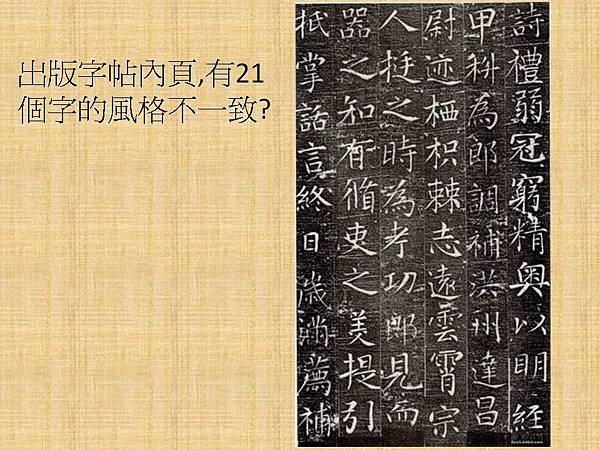 出版字帖內頁,有21
個字的風格不一致?
詩禮弱冠窮精奧以明經
甲科為郎調補洪州達昌
尉迹栖枳棘志遠雲霄宗
人挺之時為考功郎見而
器之知有脩吏之美提引
抵掌話言終日歲滿薦補